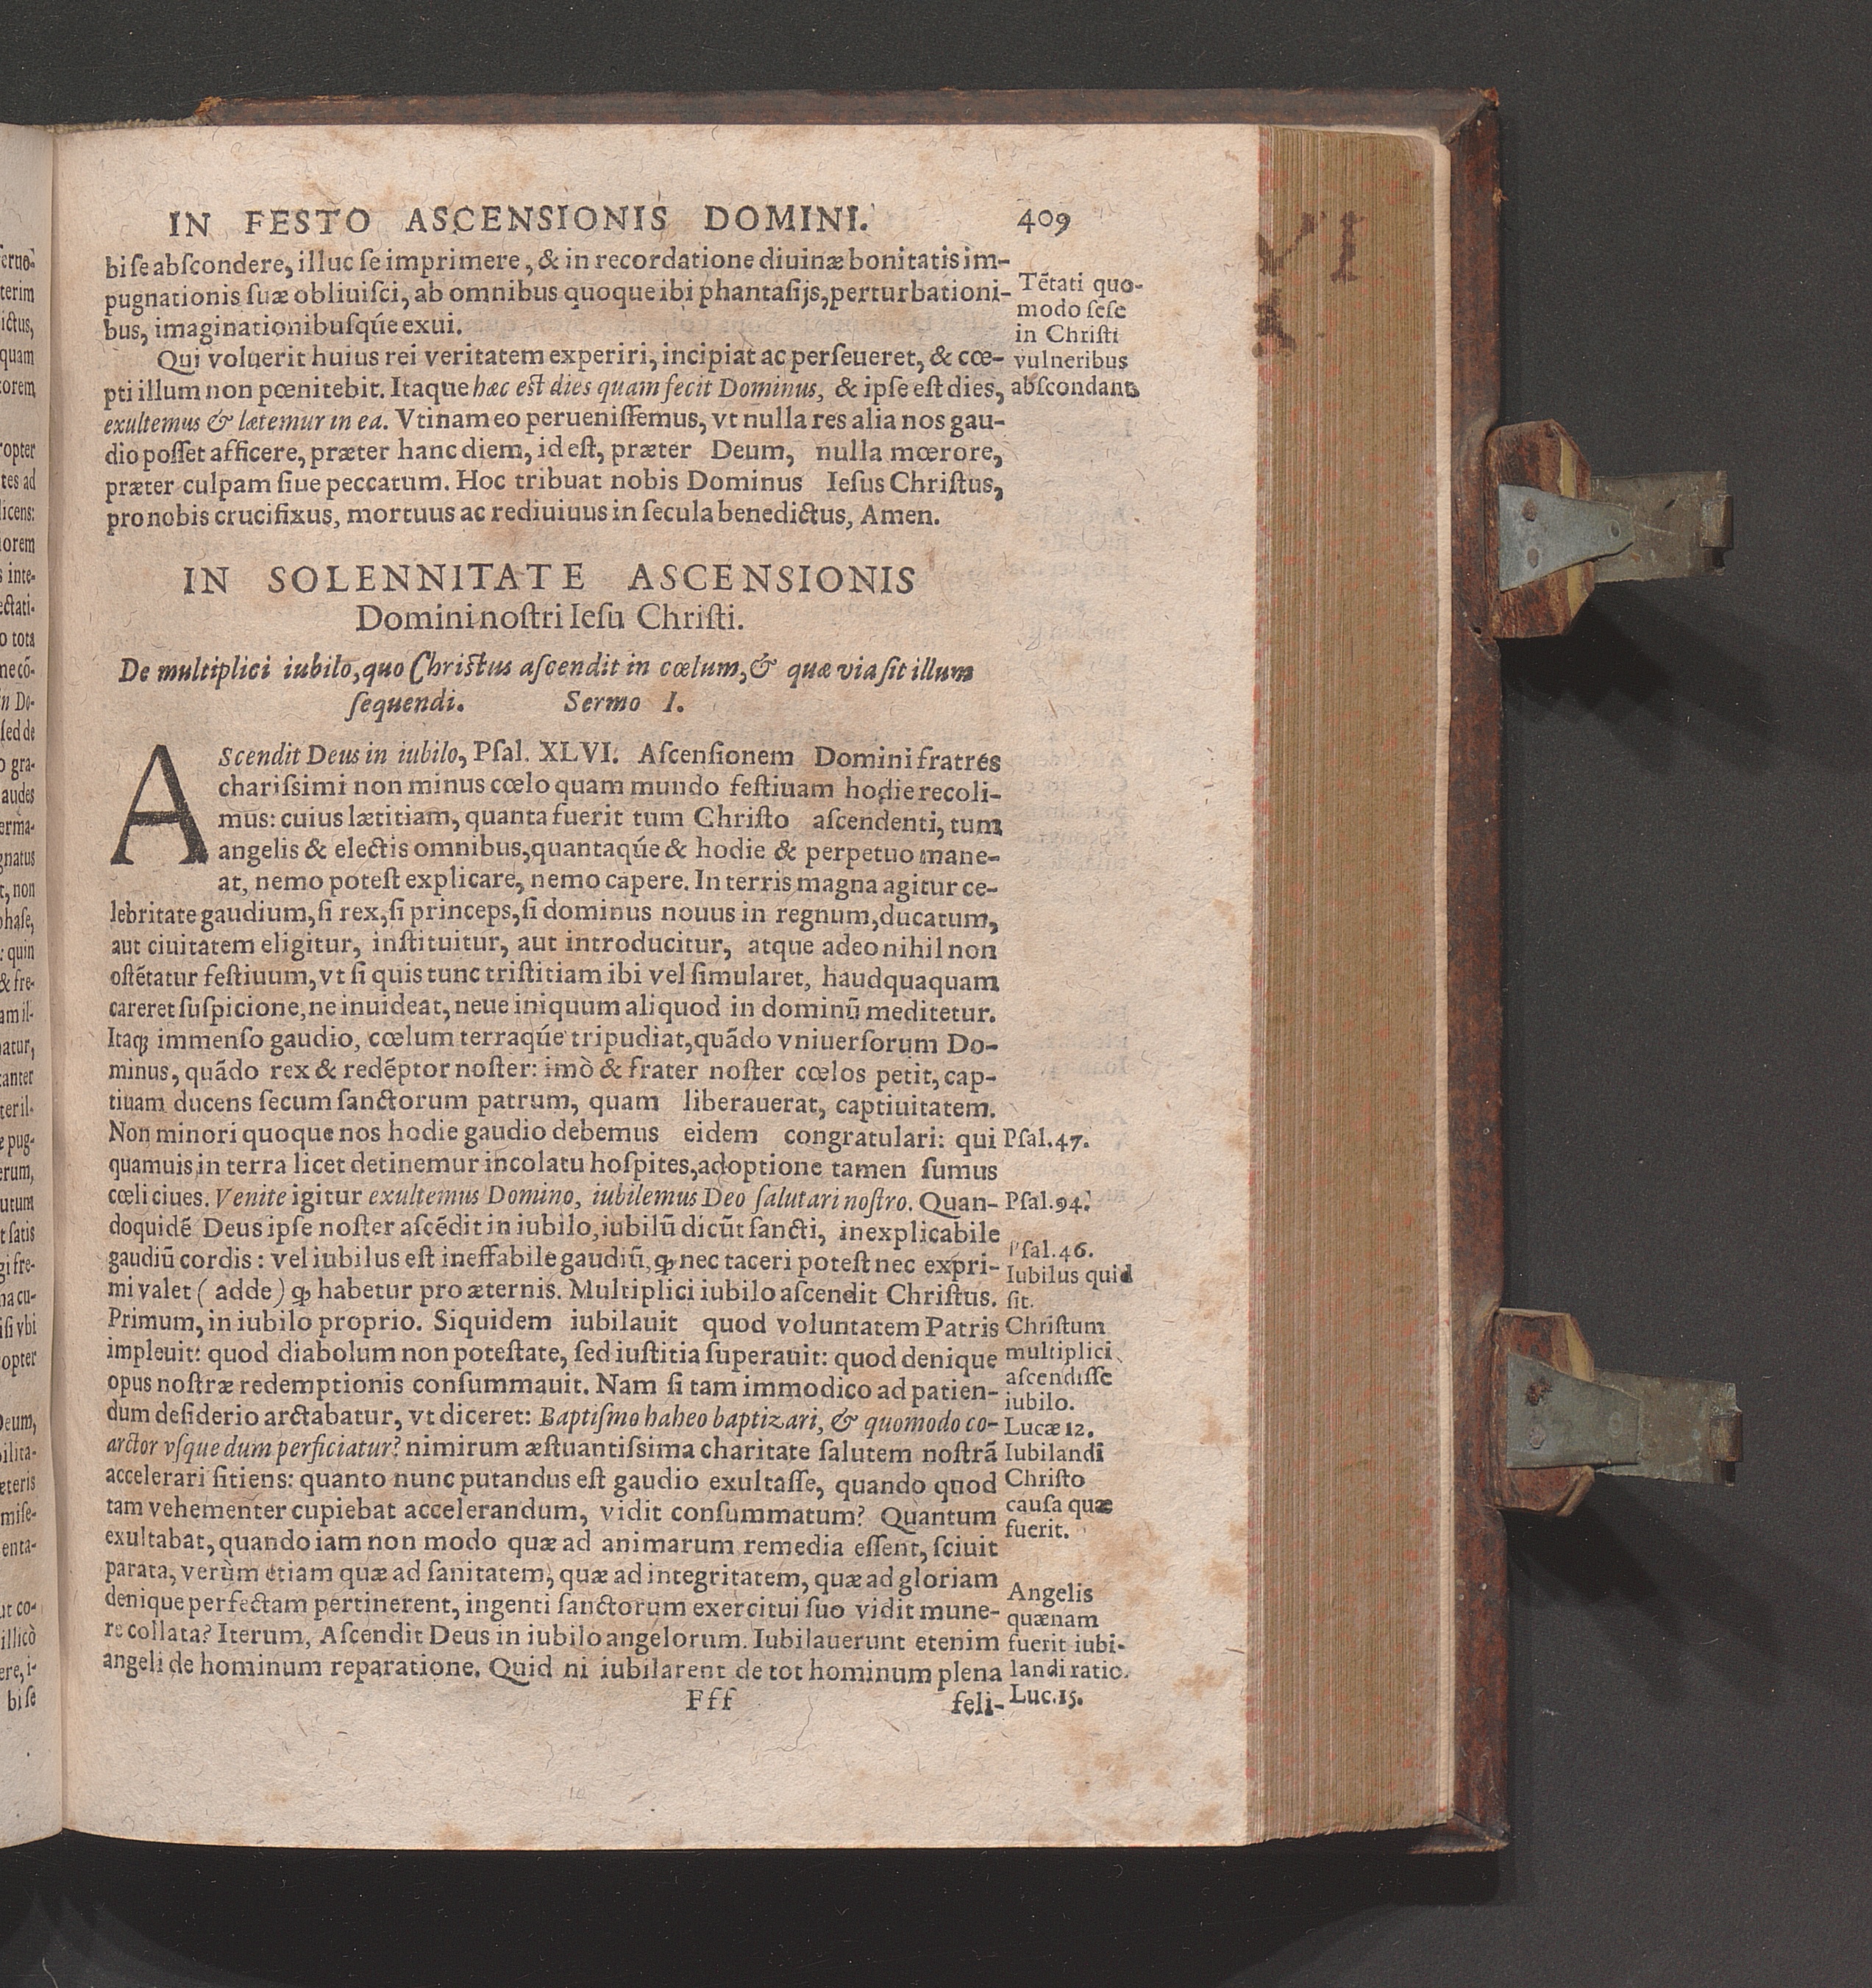 IN FESTO ASCENSIONIS DOMINI. 409
bi ſe abſcondere, illuc ſe imprimere, & in recordatione diuinæ bonitatis im-
pugnationis ſuæ obliuiſci, ab omnibus quoque ibi phantaſijs, perturbationi-
bus, imaginationibuſqúe exui.
Tētati quo-
modo ſeſe
in Chriſti
vulneribus
abſcondant
Qui voluerit huius rei veritatem experiri, incipiat ac perſeueret, & cœ-
pti illum non pœnitebit. Itaque hæc eſt dies quam fecit Dominus, & ipſe eſt dies,
exultemus & lætemur in ea. Vtinam eo perueniſſemus, vt nulla res alia nos gau-
dio poſſet afficere, præter hanc diem, id eſt, præter Deum, nulla mœrore,
præter culpam ſiue peccatum. Hoc tribuat nobis Dominus Ieſus Chriſtus,
pro nobis crucifixus, mortuus ac rediuiuus in ſecula benedictus, Amen.
IN SOLENNITATE ASCENSIONIS
Domini noſtri Ieſu Chriſti.
De multiplici iubilo, quo Chriſtus aſcendit in cœlum, & quæ via ſit illum
ſequendi. Sermo I.
AScendit Deus in iubilo, Pſal. XLVI. Aſcenſionem Domini fratres
chariſsimi non minus cœlo quam mundo feſtiuam hodie recoli-
mus: cuius lætitiam, quanta fuerit tum Chriſto aſcendenti, tum
angelis & electis omnibus, quantaqúe & hodie & perpetuo mane-
at, nemo poteſt explicare, nemo capere. In terris magna agitur ce-
lebritate gaudium, ſi rex, ſi princeps, ſi dominus nouus in regnum, ducatum,
aut ciuitatem eligitur, inſtituitur, aut introducitur, atque adeo nihil non
oſtētatur feſtiuum, vt ſi quis tunc triſtitiam ibi vel ſimularet, haudquaquam
careret ſuſpicione, ne inuideat, neue iniquum aliquod in dominū meditetur.
Itaqꝫ immenſo gaudio, cœlum terraqúe tripudiat, quādo vniuerſorum Do-
minus, quādo rex & redēptor noſter: imò & frater noſter cœlos petit, cap-
tiuam ducens ſecum ſanctorum patrum, quam liberauerat, captiuitatem.
Non minori quoque nos hodie gaudio debemus eidem congratulari: qui
quamuis in terra licet detinemur incolatu hoſpites, adoptione tamen ſumus
cœli ciues. Venite igitur exultemus Domino, iubilemus Deo ſalutari noſtro. Quan-
doquidē Deus ipſe noſter aſcēdit in iubilo, iubilū dicūt ſancti, inexplicabile
gaudiū cordis: vel iubilus eſt ineffabile gaudiū, ꝙ nec taceri poteſt nec expri-
mi valet (adde) ꝙ habetur pro æternis. Multiplici iubilo aſcendit Chriſtus.
Primum, in iubilo proprio. Siquidem iubilauit quod voluntatem Patris
impleuit: quod diabolum non poteſtate, ſed iuſtitia ſuperauit: quod denique
opus noſtræ redemptionis conſummauit. Nam ſi tam immodico ad patien-
dum deſiderio arctabatur, vt diceret: Baptiſmo haheo baptizari, & quomodo co-
arctor vſque dum perficiatur? nimirum æſtuantiſsima charitate ſalutem noſtrā
accelerari ſitiens: quanto nunc putandus eſt gaudio exultaſſe, quando quod
tam vehementer cupiebat accelerandum, vidit conſummatum? Quantum
exultabat, quando iam non modo quæ ad animarum remedia eſſent, ſciuit
parata, verùm etiam quæ ad ſanitatem, quæ ad integritatem, quæ ad gloriam
denique perfectam pertinerent, ingenti ſanctorum exercitui ſuo vidit mune-
re collata? Iterum, Aſcendit Deus in iubilo angelorum. Iubilauerunt etenim
angeli de hominum reparatione. Quid ni iubilarent de tot hominum plena
Pſal.47.
Pſal.94.
Pſal.46.
Iubilus quid
ſit.
Chriſtum
multiplici
aſcendiſſe
iubilo.
Lucæ 12.
Iubilandi
Chriſto
cauſa quæ
fuerit.
Angelis
quænam
fuerit iubi-
landi ratio.
Luc.15.
Fff feli-
VI